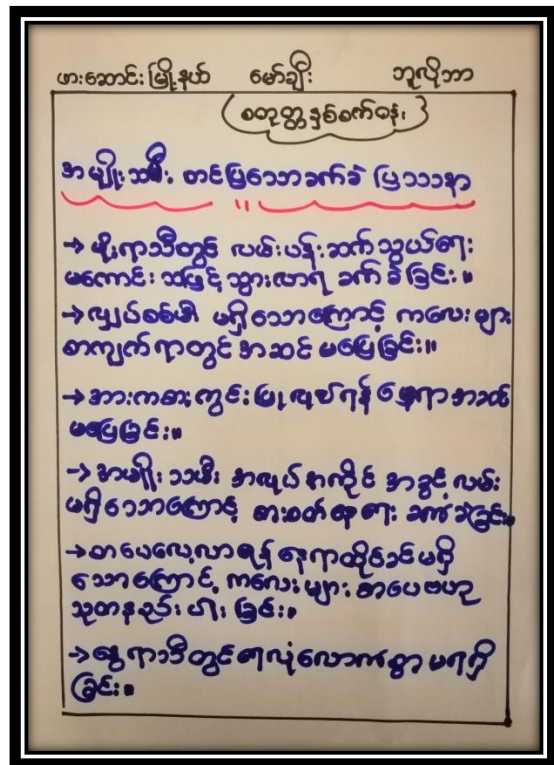 ဖားဆောင်းမြို့နယ် မော်ချီး ဘူလိုဘာ
စတုတ္တနှစ်စက်ဝန်း
အမျိုးသမီး တင်ပြသောအခက်ခဲ ပြဿနာ
→ မိုးရာသီတွင် လမ်းပန်းဆက်သွယ်ရေး
မကောင်းသဖြင့် သွားလာရ ခက်ခဲခြင်း။
→ လျှပ်စစ်မီး မရှိသောကြောင့် ကလေးများ
စာကျက်ရာတွင် အဆင် မပြေခြင်း။
→ အားကစားကွင်းပြုလုပ်ရန် နေရာအဆင်
မပြေခြင်း။
→ အမျိုးသမီး အလုပ်အကိုင် အခွင့်လမ်း
မရှိသောကြောင့် စားဝတ်နေရေး ခက်ခဲခြင်း။
→ စာပေလေ့လာရန် နေရာထိုင်ခင်းမရှိ
သောကြောင့် ကလေးများ စာပေဗဟု
သုတနည်းပါးခြင်း။
→ နွေရာသီတွင် ရေလုံလောက်စွာ မရရှိ
ခြင်း။